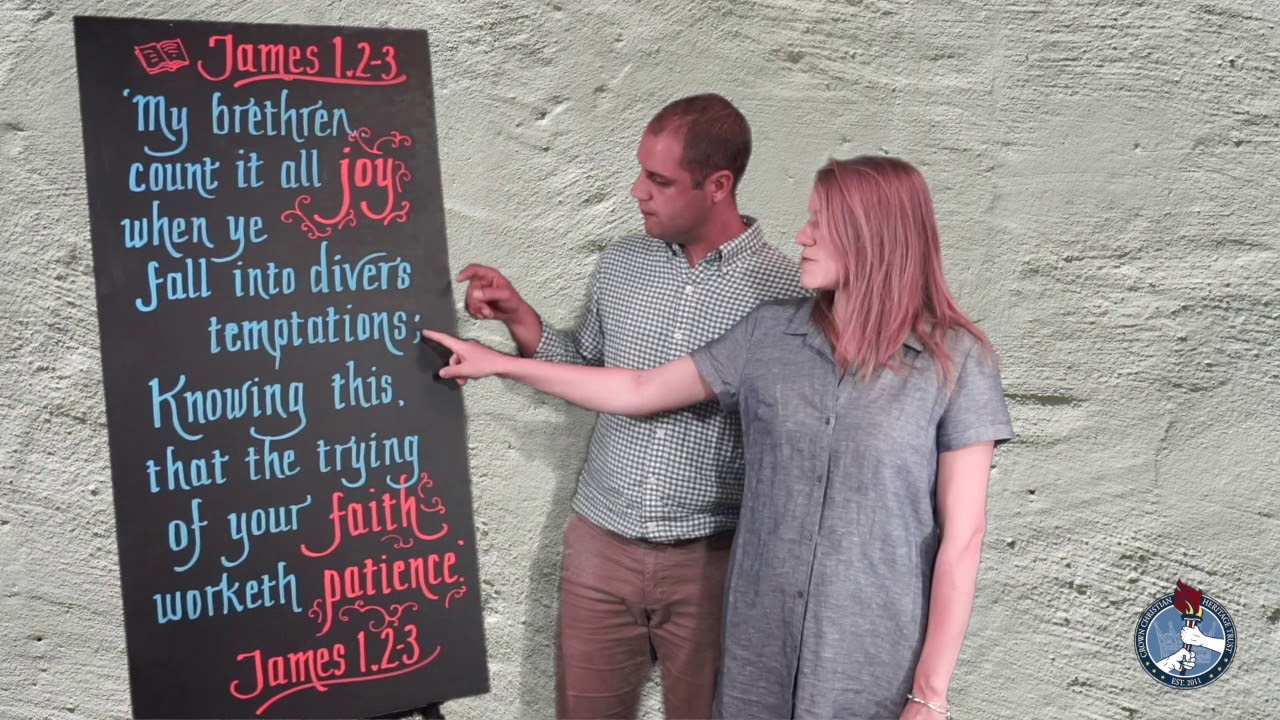 James 1.2-3
'My brethren,
count it all joy
when ye
fall into divers
temptations;
Knowing this,
that the trying
of your faith
worketh patience.'
James 1.2-3
CROWN CHRISTIAN HERITAGE TRUST
EST. 2011